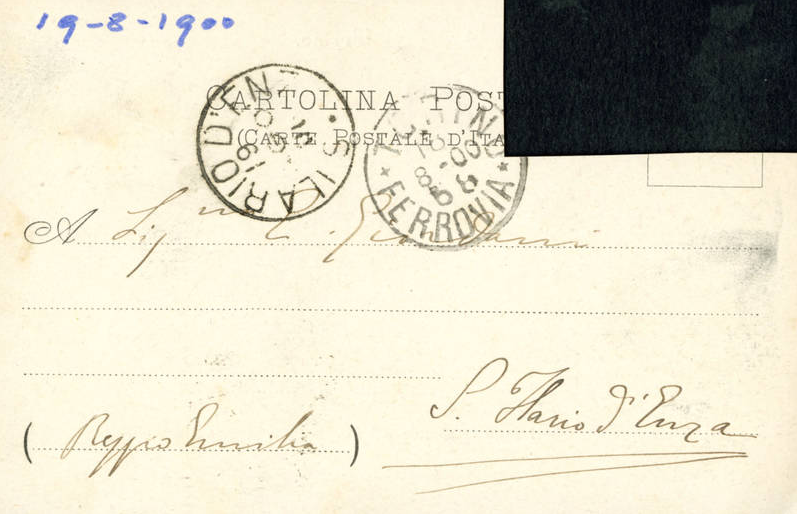 19-8-1900
CARTOLINA POST
(CARTE POSTALE D'ITA
S. ILARIO D'EN
FERROVIA
A Sig.na
S. Ilario d'Enza
(Reggio Emilia)